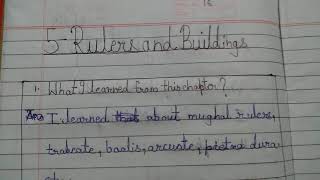 5-Rulers and Buildings
1. What I learned from this chapter?
Ans I learned about mughal rulers,
trabeate, baolis, arcuate, dura